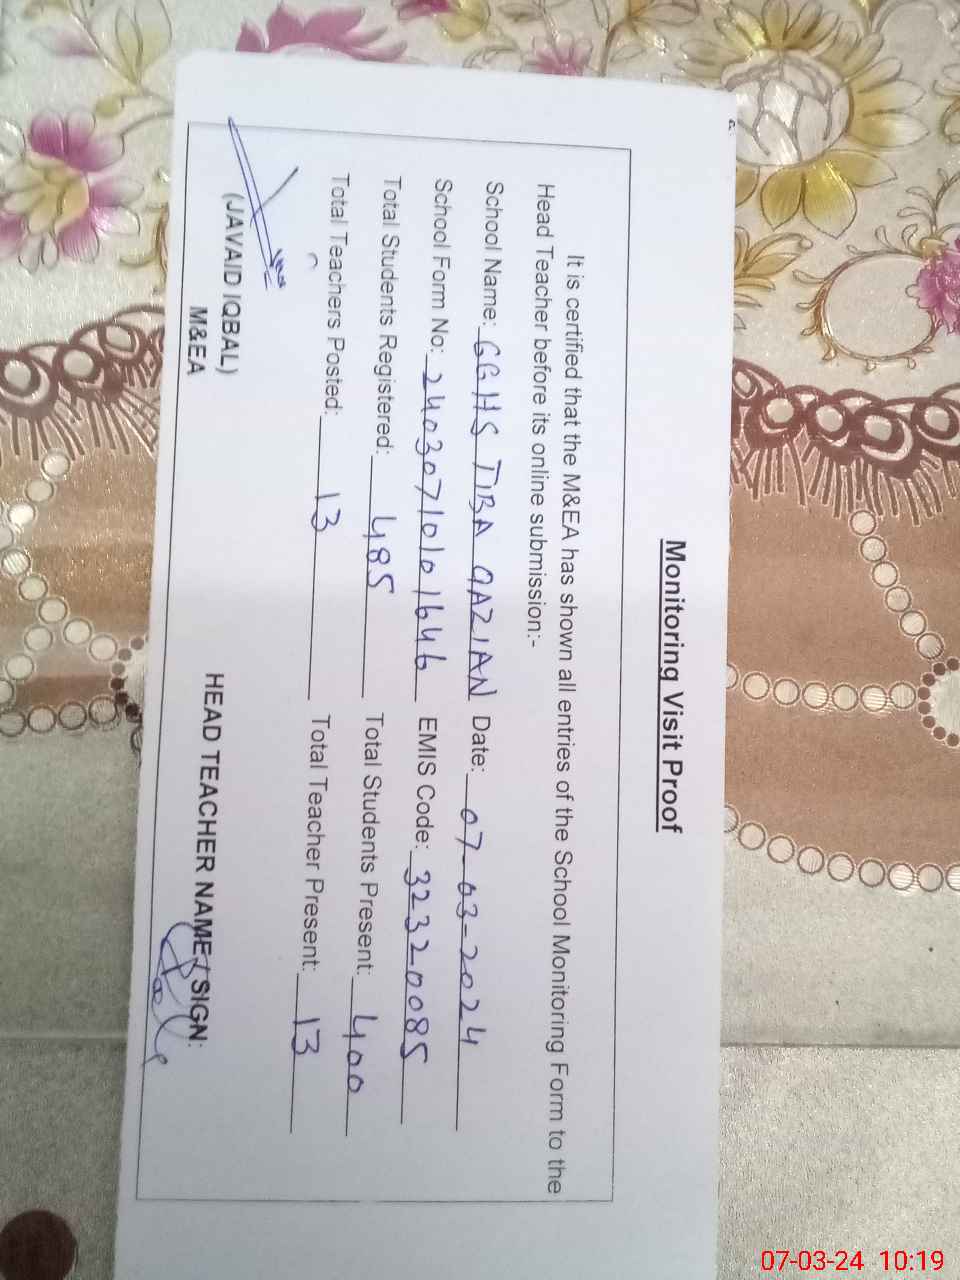 Monitoring Visit Proof
It is certified that the M&EA has shown all entries of the School Monitoring Form to the
Head Teacher before its online submission:-
School Name: GGHS TIBA QAZIAN Date: 07-03-2024
School Form No: 24030710101646 EMIS Code: 32320085
Total Students Registered: 485 Total Students Present: 400
Total Teachers Posted: 13 Total Teacher Present: 13
(JAVAID IQBAL)
M&EA
HEAD TEACHER NAME / SIGN:
07-03-24 10:19